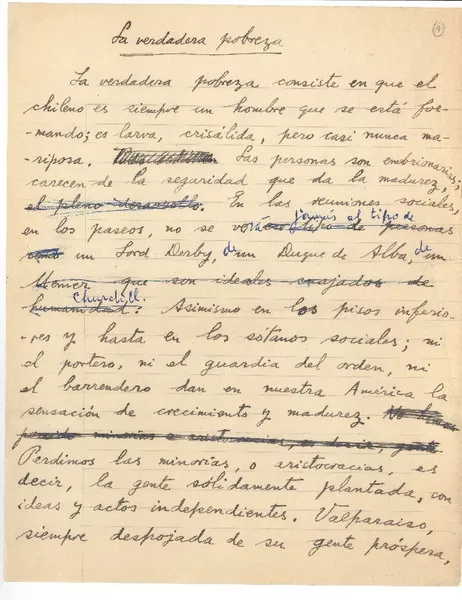 La verdadera pobreza
La verdadera pobreza consiste en que el
chileno es siempre un hombre que se está for-
mando; es larva, crisálida, pero casi nunca ma-
riposa. Las personas son embrionarias;
carecen de la seguridad que da la madurez,
el pleno desarrollo. En las reuniones sociales,
jamás el tipo de
en los paseos, no se verá tipo de personas
como un Lord Derby, de un Duque de Alba, de un
que son ideales cuajados de
Churchill.
humanidad. Asimismo en los pisos inferio-
-res y hasta en los sótanos sociales; ni
el portero, ni el guardia del orden, ni
el barrendero dan en nuestra América la
sensación de crecimiento y madurez. No hemos
perdido minorías o aristocracias, es decir, gente
Perdimos las minorías, o aristocracias, es
decir, la gente sólidamente plantada, con
ideas y actos independientes. Valparaíso,
siempre despojada de su gente próspera,